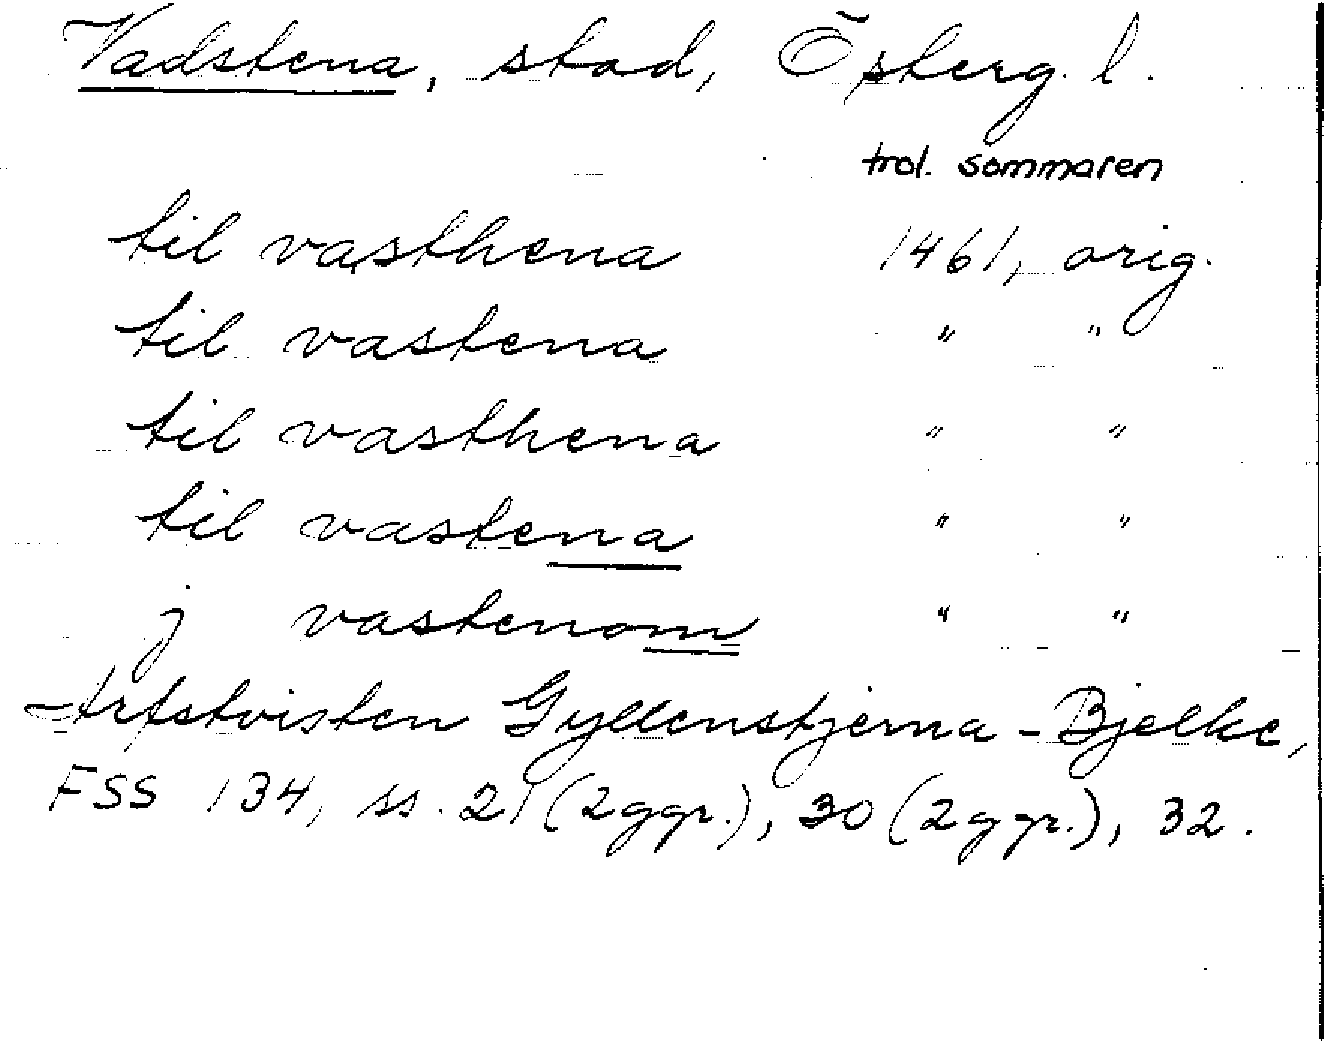 Vadstena, stad, Österg. l.
trol. sommaren
til vasthena 1461, orig.
til vastena " "
til vasthena " "
til vastena " "
j vastenom " "
Arfstvisten Gyllenstjerna - Bjelke,
FSS 134, ss. 21 (2 ggr.), 30 (2 ggr.), 32.